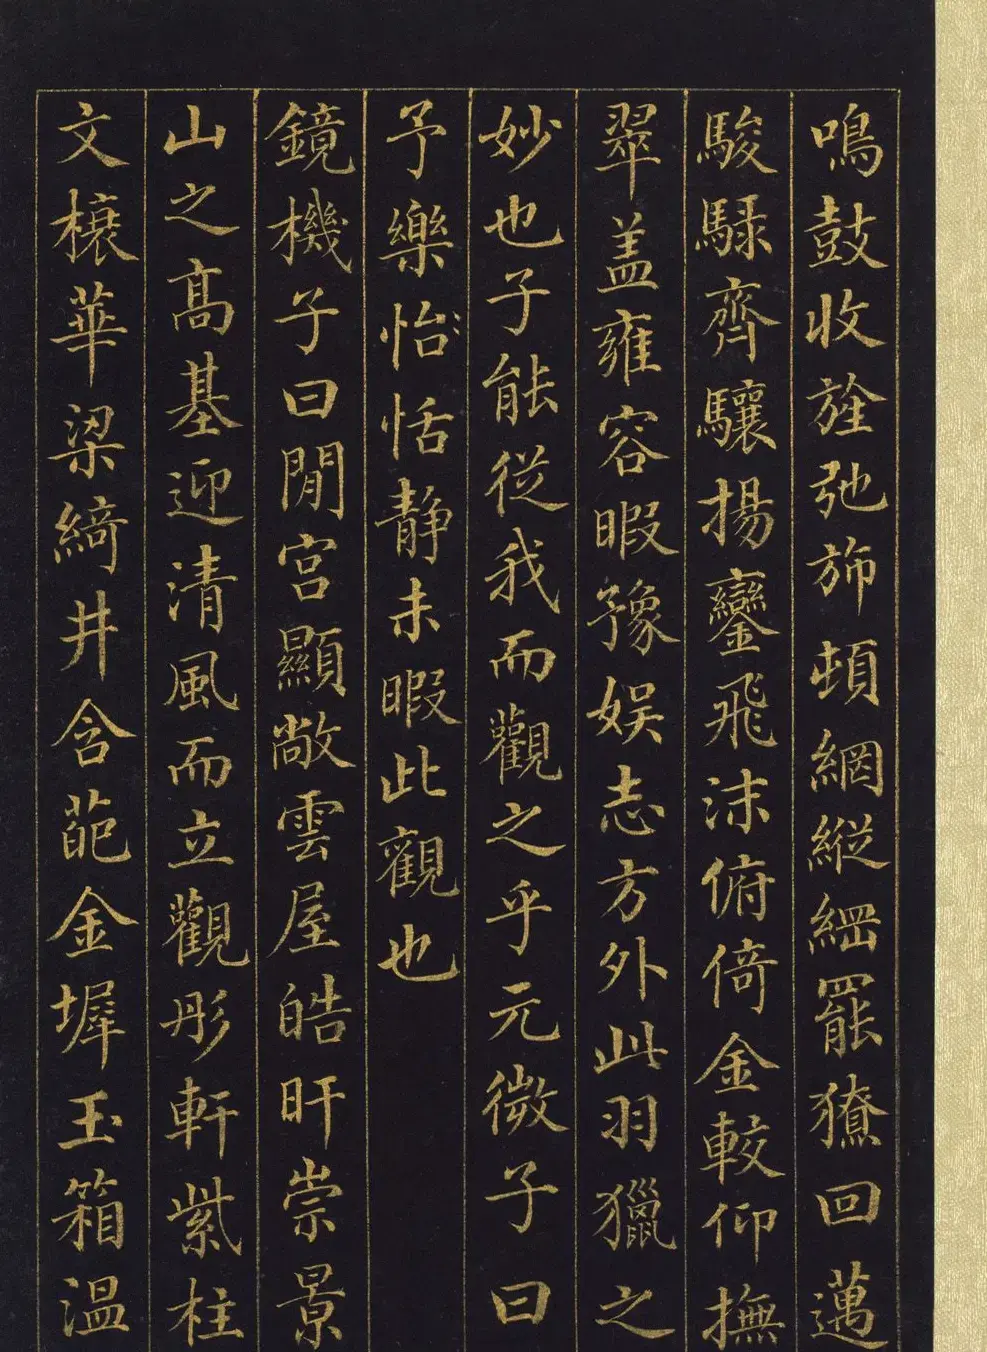 鳴鼓收旌弛斾頓網縱綱罷獠回邁
駿騄齊驤揚鑾飛沫俯倚金較仰撫
翠盖雍容暇豫娛志方外此羽獵之
妙也子能從我而觀之乎元微子曰
予樂怡恬静未暇此觀也
鏡機子曰閒宮顯敞雲屋皓旰崇景
山之髙基迎清風而立觀彤軒紫柱
文榱華梁綺井含葩金墀玉箱溫